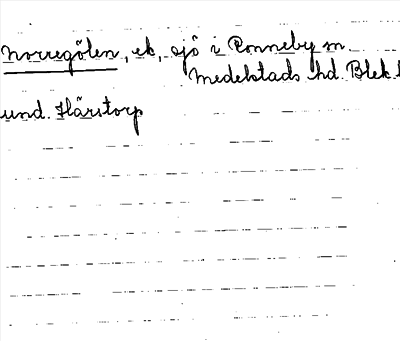 Norregölen, ek, sjö i Ronneby sn.
Medelstads hd. Blek. l
und. Härstorp